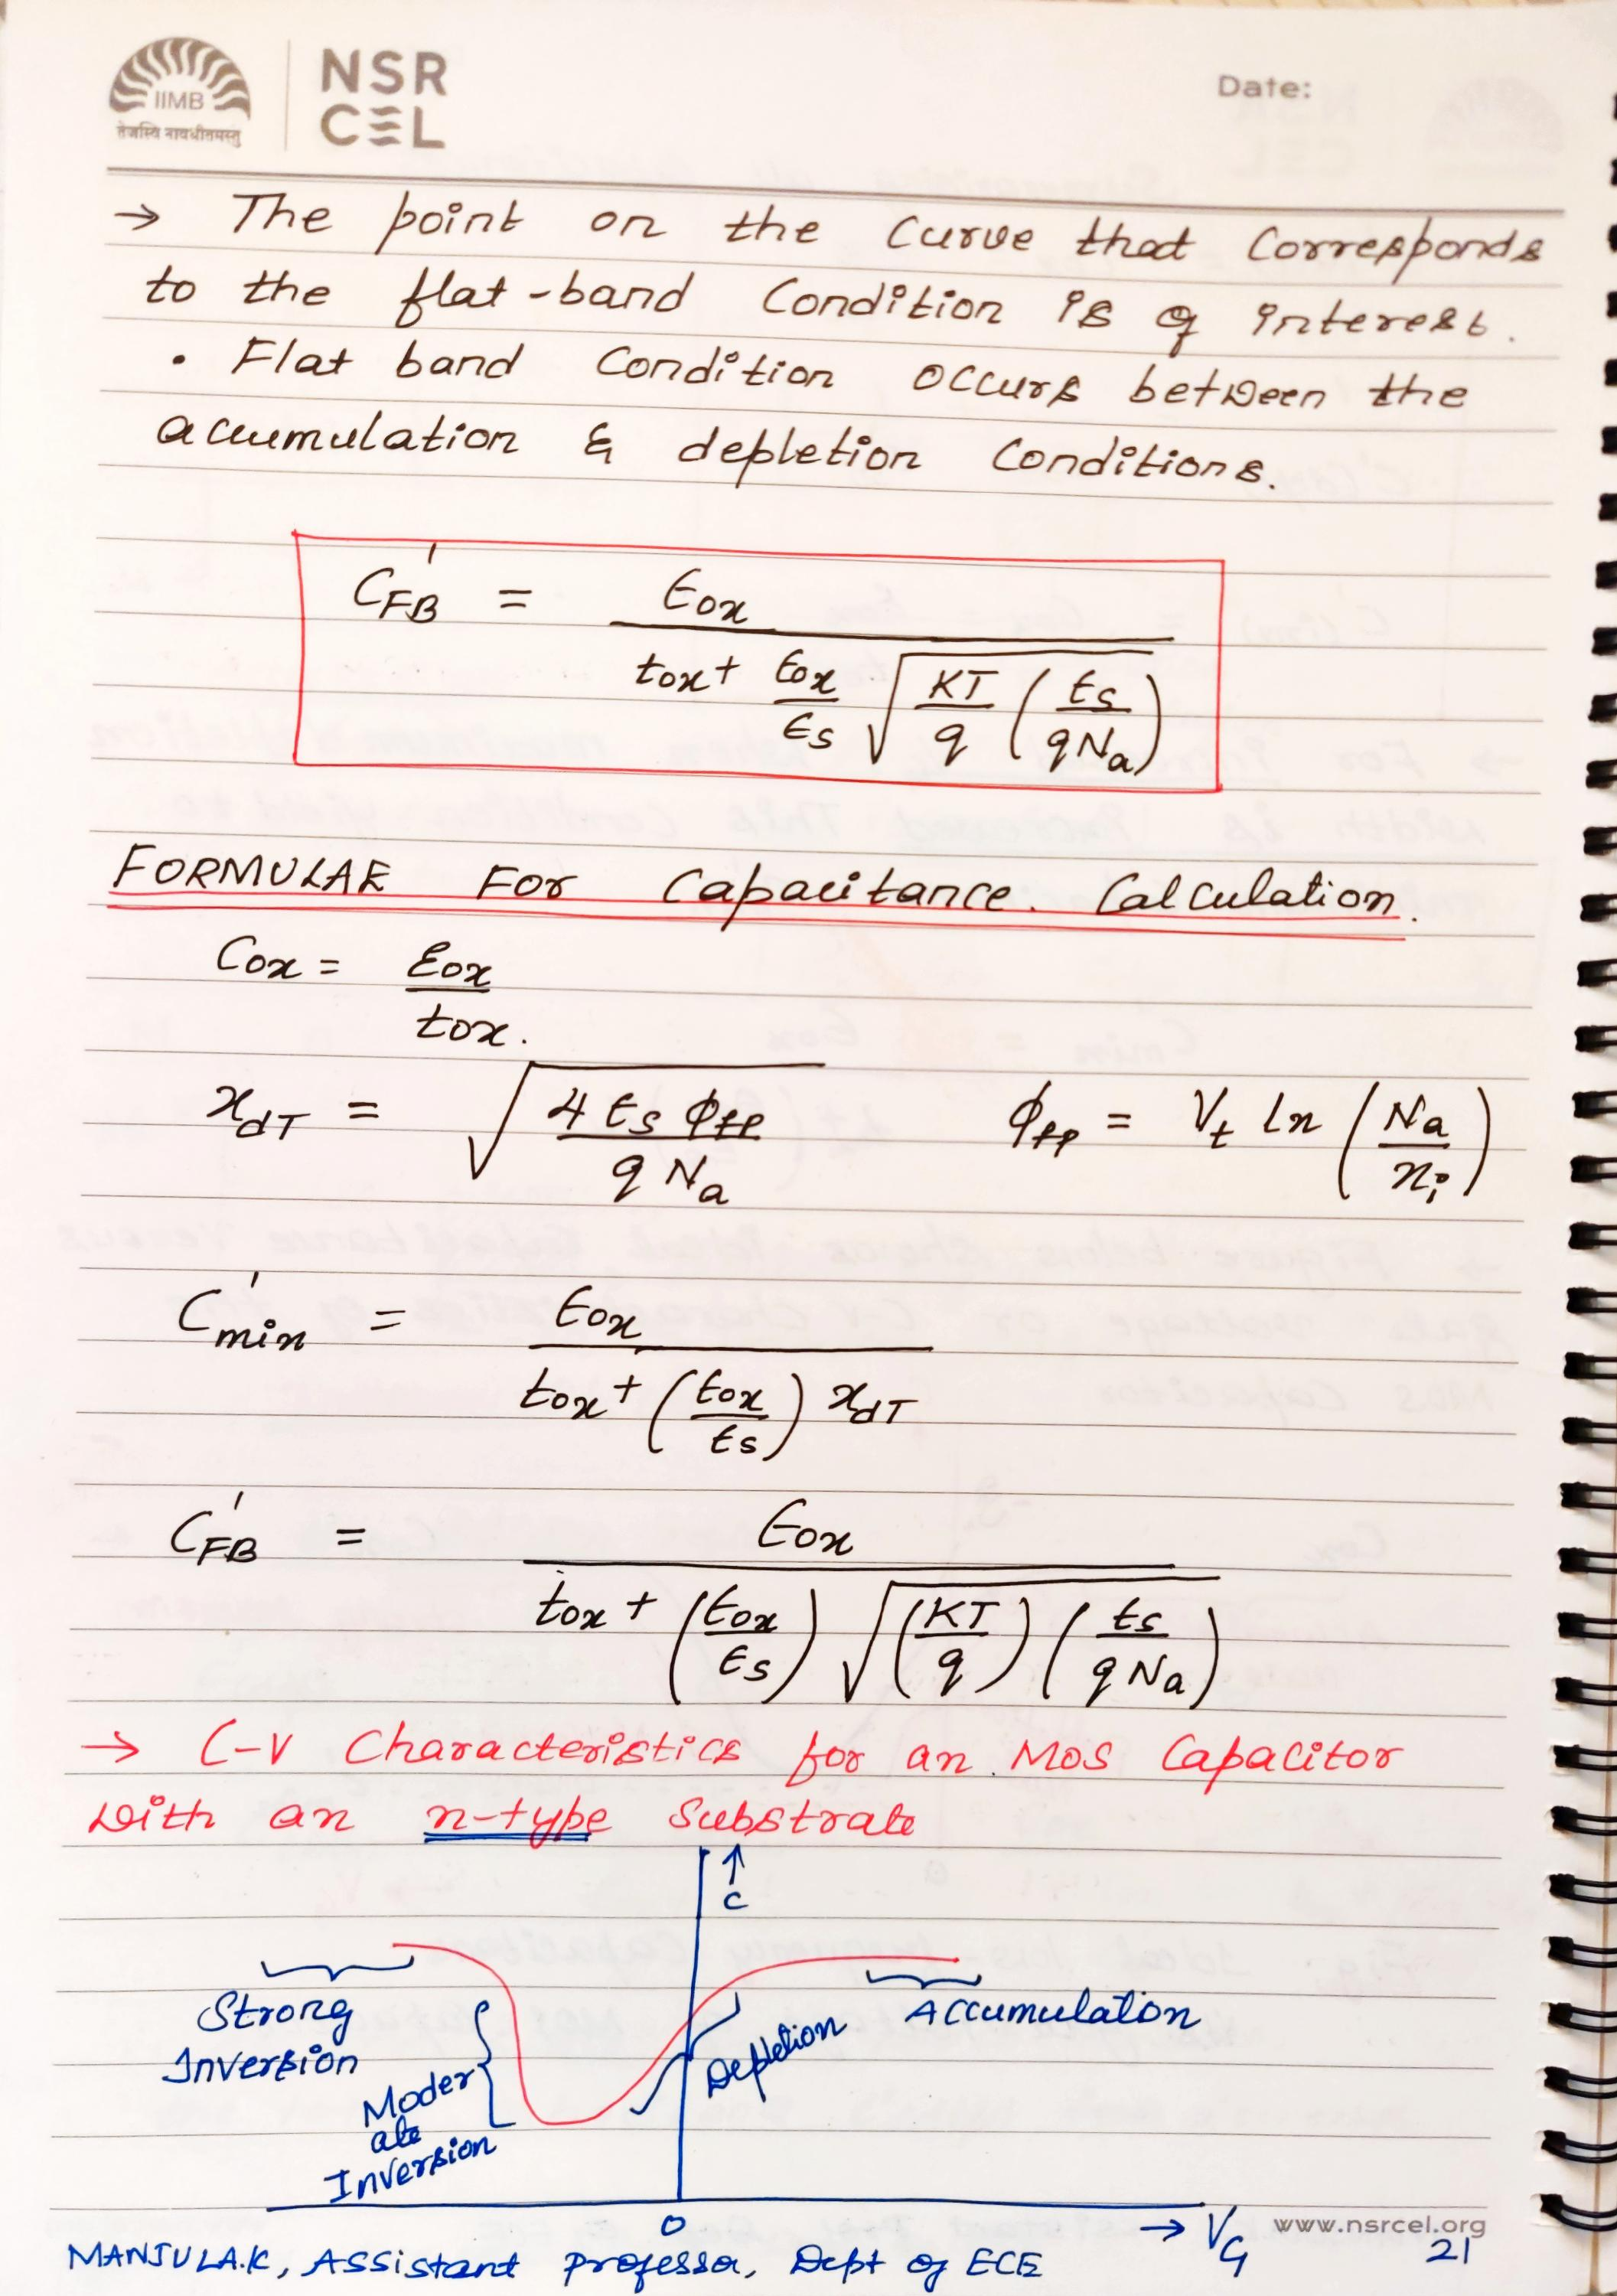 IIMB
तेजस्वि नावधीतमस्तु
NSR
CEL
Date:
→ The point on the curve that corresponds
to the flat-band condition is of interest.
• Flat band condition occurs between the
accumulation & depletion conditions.
C'FB = ϵox / (tox + ϵox/ϵs √(KT/q (ϵs/qNa)))
FORMULAE For Capacitance. Calculation.
Cox = ϵox / tox.
xdT = √(4 ϵs φfp / q Na)   φfp = Vt ln (Na/ni)
C'min = ϵox / (tox + (ϵox/ϵs) xdT)
C'FB = ϵox / (tox + (ϵox/ϵs) √((KT/q) (ϵs/qNa)))
→ C-V Characteristics for an MOS Capacitor
with an n-type Substrate
↑
C
Strong
Inversion
Moder
ate
Inversion
Depletion
Accumulation
0
→ VG
www.nsrcel.org
21
MANJULA.K, Assistant professor, Dept of ECE